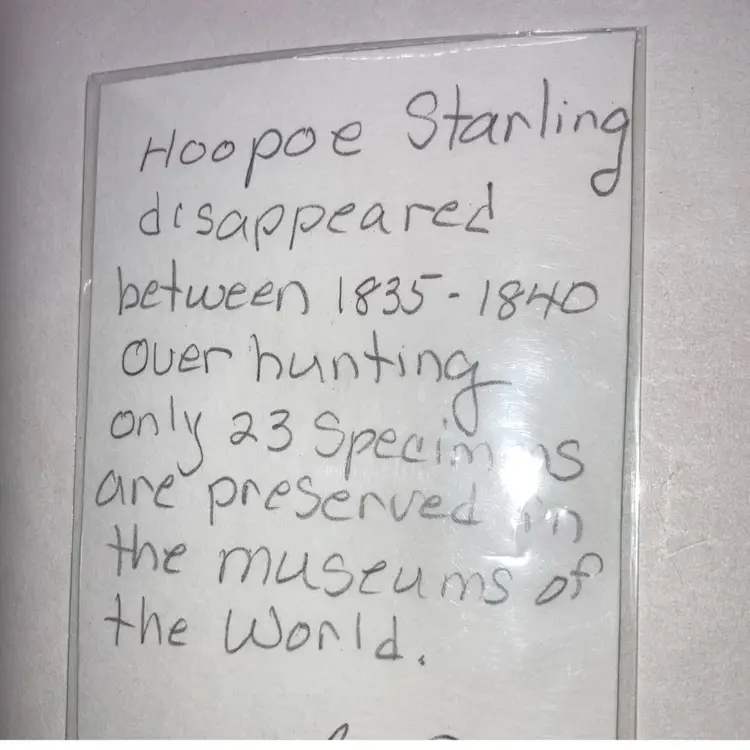 Hoopoe Starling
disappeared
between 1835-1840
over hunting
only 23 Specimens
are preserved in
the museums of
the World.